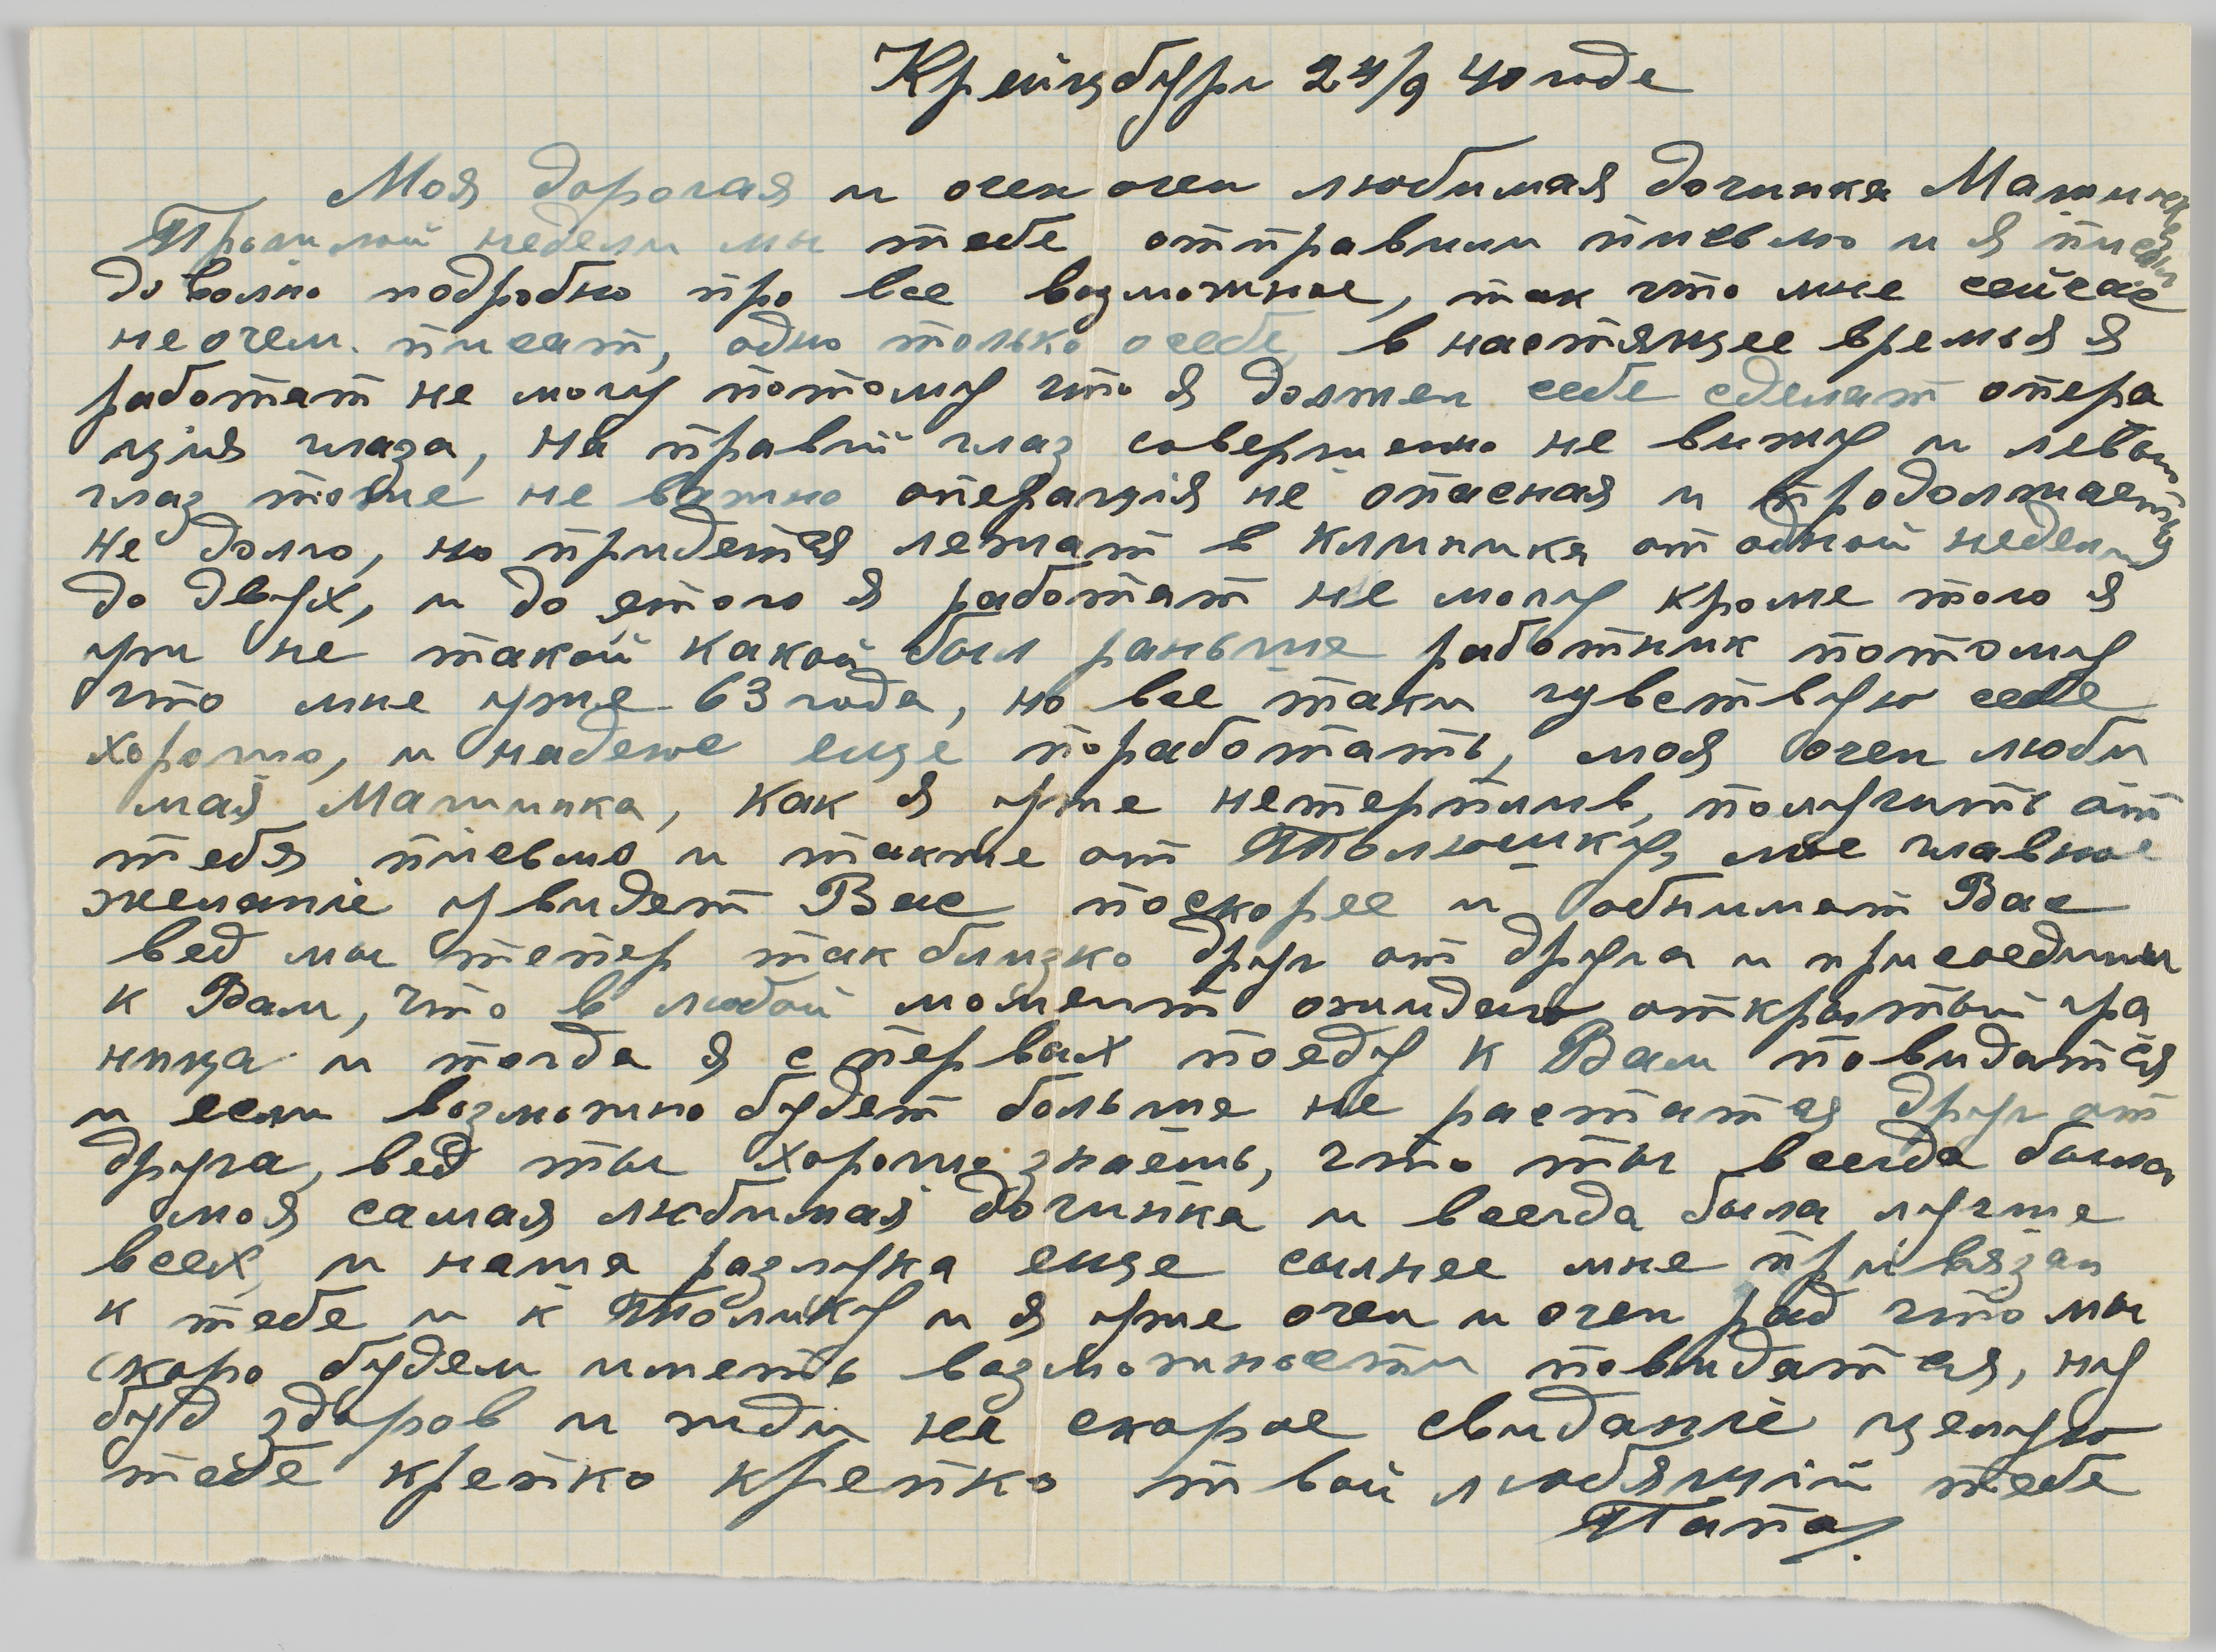 Крейцбург 24/9 40 года
Моя дорогая и очен очен любимая дочинка Машинка
Прошлой недели мы тебе отправили письмо и я писал
доволно подробно про все возможное, так что мне сейчас
не очем писат, одно только осебе, в настящее времья я
работат не могу потому что я должен себе сделат опера
ция глаза, на правый глаз совершено не вижу и левым
глаз тоже не важно операція не опасная и продолжается
не долго, но придется лежат в клиника от одной недели
до двух, и до етого я работат не могу кроме того я
уж не такой какой был раньше работник потому
что мне уже 63 года, но все таки чувствую себе
хорошо, и надеюс еще поработать, моя очен люби
мая Машинка, как я уже нетерпилив, получить от
тебя письмо и также от Толюшку, мое главное
желаніе увидет Вас поскорее и обнимат Вас
вед мы тепер так близко друг от друга и присоедины
к Вам, что в любой момент ожидаю открытый гра
ница и тогда я с первых поеду к Вам повидатся
и если возможно будет больше не растатся друг от
друга, вед ты хорошо знаешь, что ты всегда была
моя самая любимая дочинка и всегда была лучше
всех, и наша разлука еще сылнее мне привязан
к тебе и к Толику и я уже очен и очен рад что мы
скоро будем иметь возможности повидатся, ну
буд здоров и жди на скорое свиданіе целую
тебе крепко крепко твой любящій тебе
Папа.